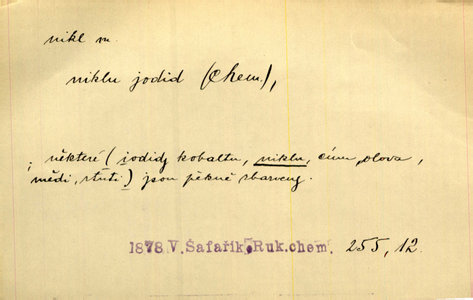 nikl m.
niklu jodid (Chem.),
; některé (jodidy kobaltu, niklu, cínu, olova,
mědi, rtuti) jsou pěkně zbarveny.
1878 V. Šafařík, Ruk. chem. 255, 12.